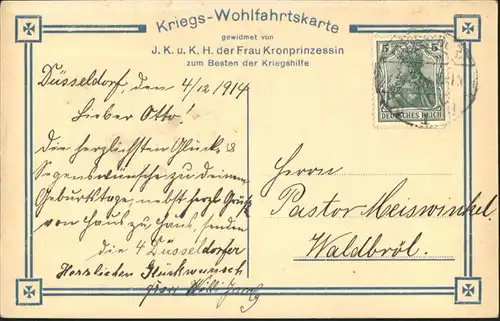 Kriegs-Wohlfahrtskarte
gewidmet von
J. K. u. K. H. der Frau Kronprinzessin
zum Besten der Kriegshilfe
5 5
DEUTSCHES REICH
Düsseldorf, den 4/12 1914
Lieber Otto!
Die herzlichsten Glück- &
Segenswünsche zu deinem
Geburtstage, nebst herzl. Gruß
von Haus zu Haus, senden
die 4 Düsseldorfer
Herzlichen Glückwunsch
Willi
Herrn
Pastor Meiswinkel
Waldbröl.